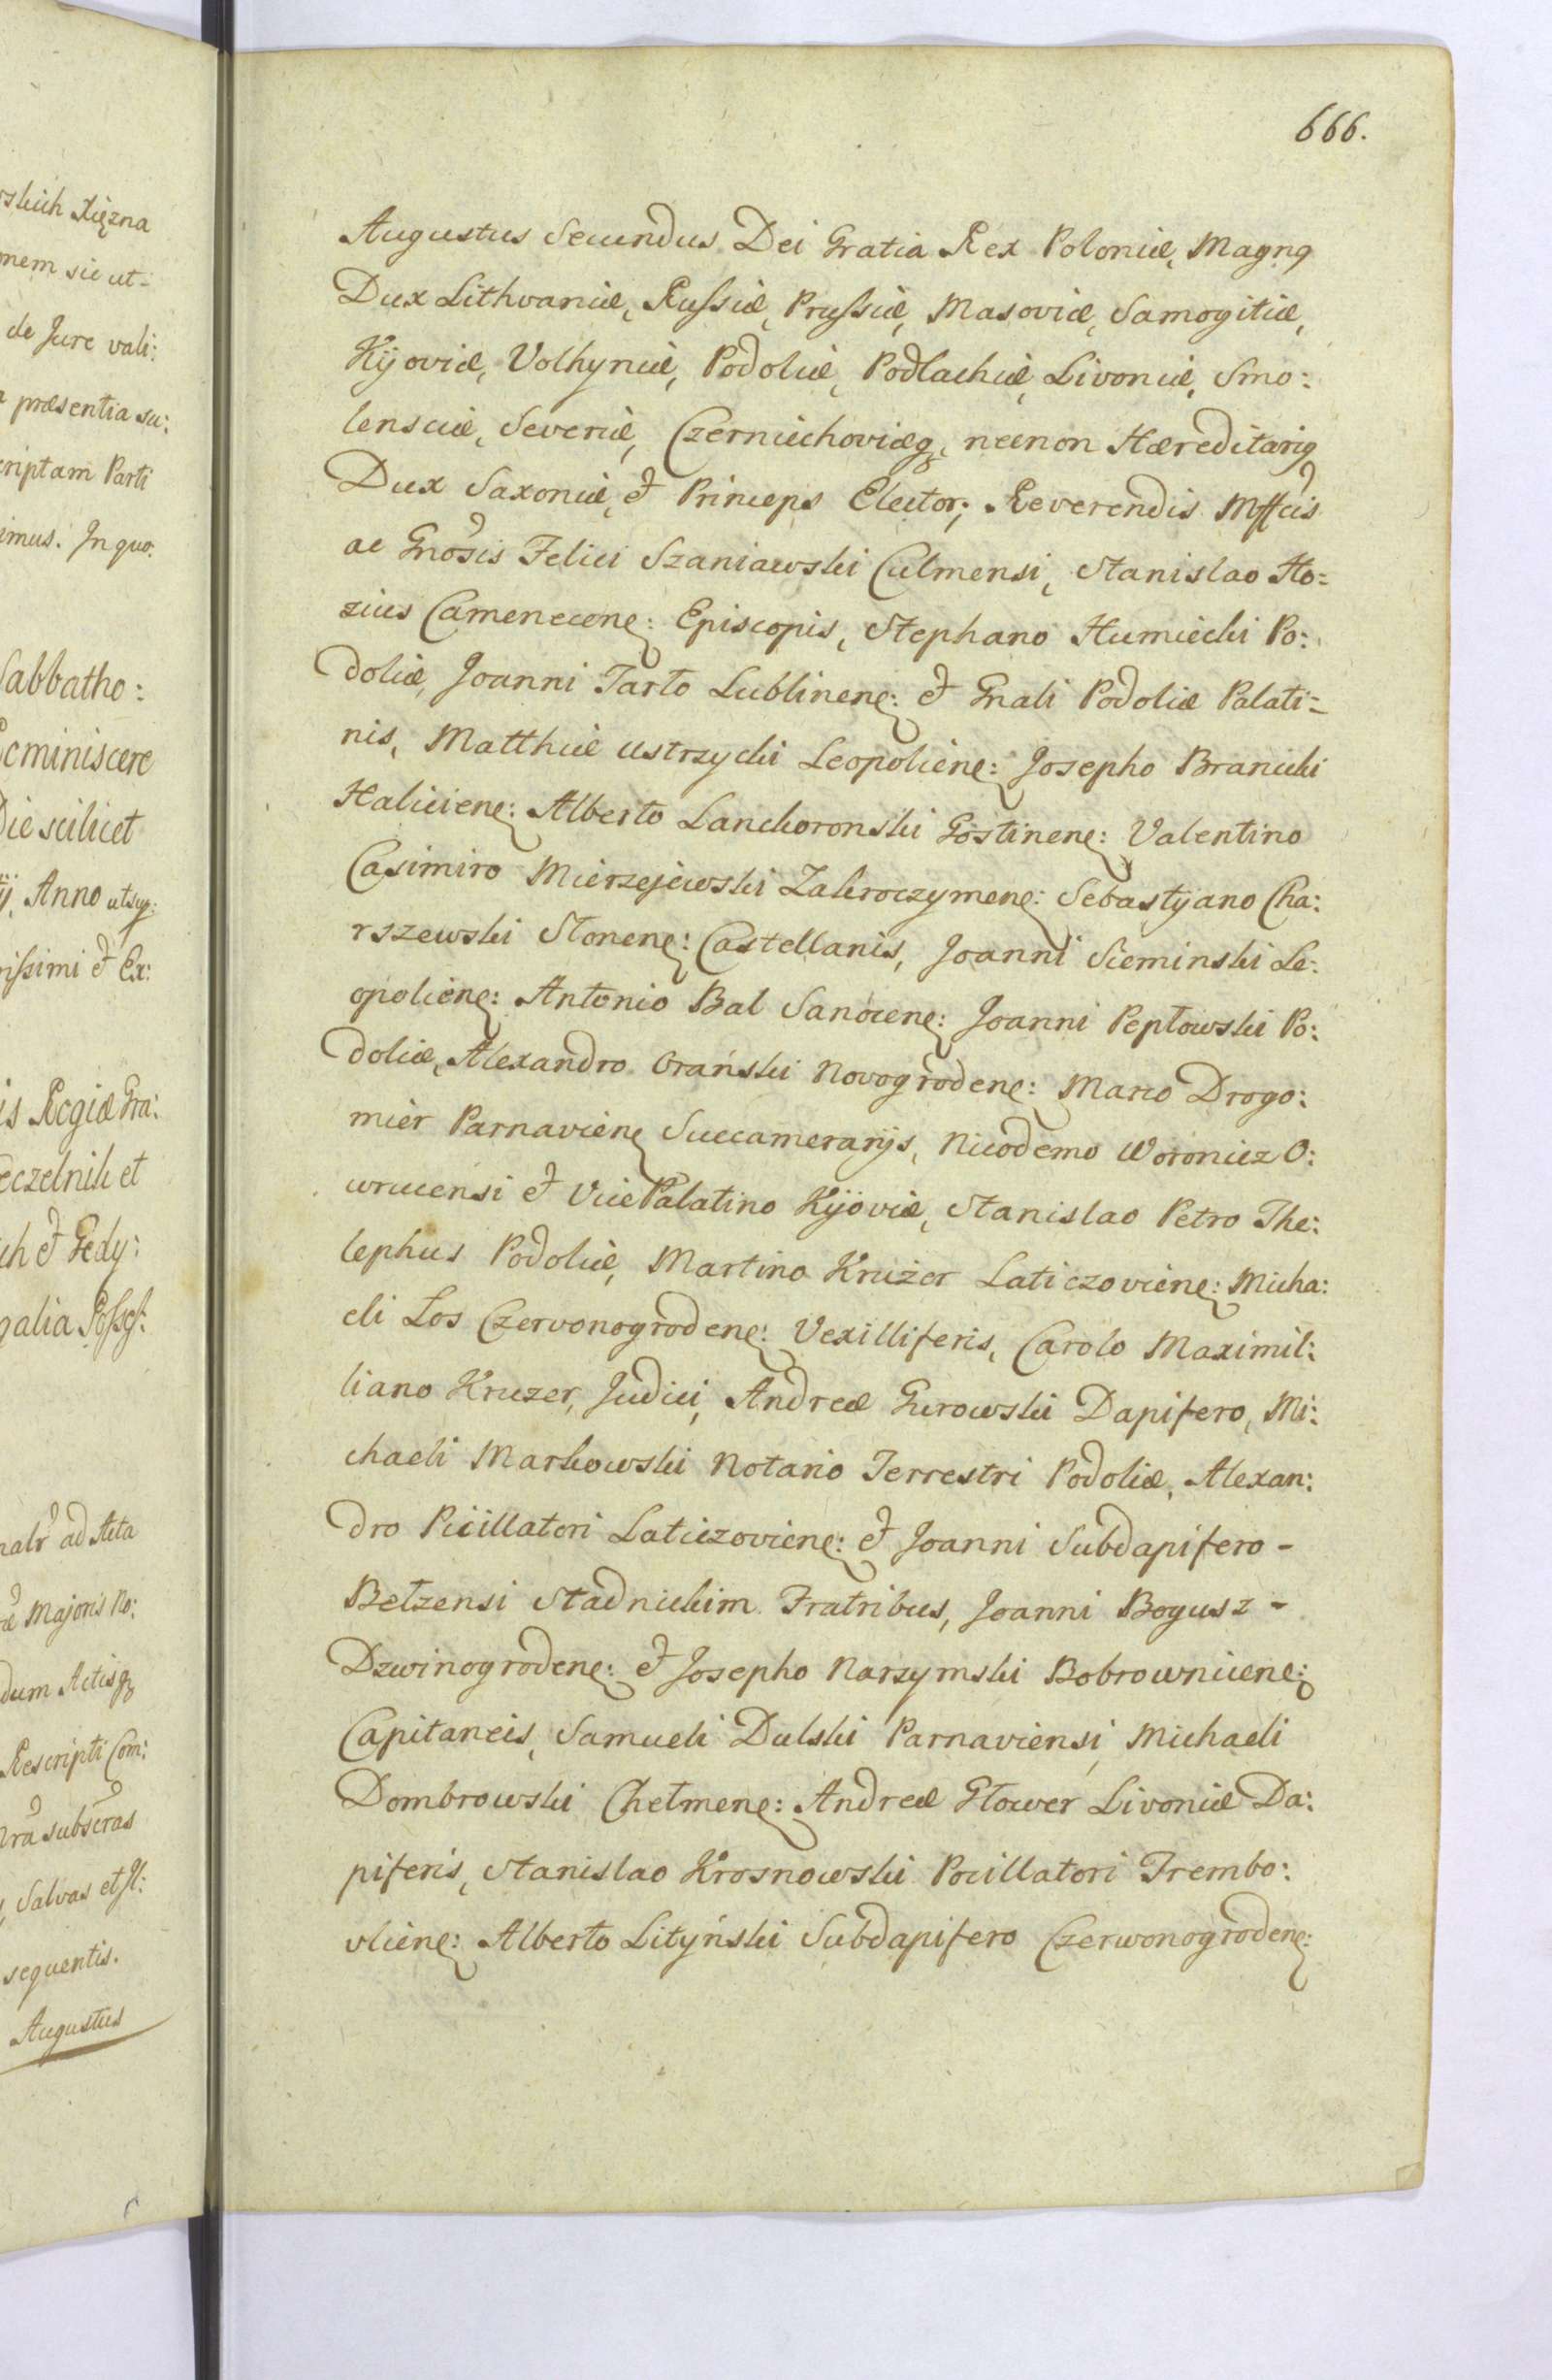 skich Xięzna
nem sic ut-
de Jure vali:
præsentia su:
criptam Parti
imus. In quo.
Sabbatho:
eminiscere
Die scilicet
ij, Anno utsup:
rissimi et Ex:
is Regiæ Gra:
eczelnik et
ich et Gedy:
galia Posses:
ad Acta
Majoris No:
dum Actisq
Rescripti Com:
subscras
Salvas etst:
sequentis.
Augustus
666.
Augustus Secundus Dei Gratia Rex Poloniæ, Magnq
Dux Lithvaniæ, Russiæ, Prussiæ, Masoviæ, Samogitiæ,
Kijoviæ, Volhyniæ, Podoliæ, Podlachiæ, Livoniæ, Smo:
lensciæ, Severiæ, Czerniechoviæq, necnon Hæreditariq
Dux Saxoniæ, et Princeps Elector; Reverendis Mffcis
ac Gnosis Felici Szaniawski Culmensi, Stanislao Ho=
zius Camenecene: Episcopis, Stephano Humiecki Po:
doliæ, Joanni Tarło Lublinene: et Gnali Podoliæ Palati=
nis, Matthiæ Ustrzycki Leopoliene: Josepho Branicki
Haliciene: Alberto Lanckoronski Gostinene: Valentino
Casimiro Mierzejewski Zakroczymene: Sebastyano Cha:
rszewski Słonene: Castellanis, Joanni Sieminski Le:
opoliene: Antonio Bal Sanocene: Joanni Pepłowski Po:
doliæ, Alexandro Orański Novogrodene: Marco Drogo:
mier Parnaviene Succamerarijs, Nicodemo Woronicz O:
wrucensi et Vice Palatino Kijoviæ, Stanislao Petro The:
lephus Podoliæ, Martino Kruzer Laticzoviene: Micha:
eli Łos Czervonogrodene: Vexilliferis, Carolo Maximil:
liano Kruzer, Judici, Andreæ Gurowski Dapifero, Mi:
chaeli Markowski Notario Terrestri Podoliæ, Alexan:
dro Picillatori Laticzoviene: et Joanni Subdapifero -
Bełzensi Stadnickim Fratribus, Joanni Bogusz -
Dzwinogrodene: et Josepho Narzymski Bobrownicene:
Capitaneis, Samueli Dulski Parnaviensi, Michaeli
Dombrowski Chełmene: Andreæ Głower Livoniæ Da:
piferis, Stanislao Krosnowski Pocillatori Trembo:
vliene: Alberto Lityński Subdapifero Czerwonogrodene: